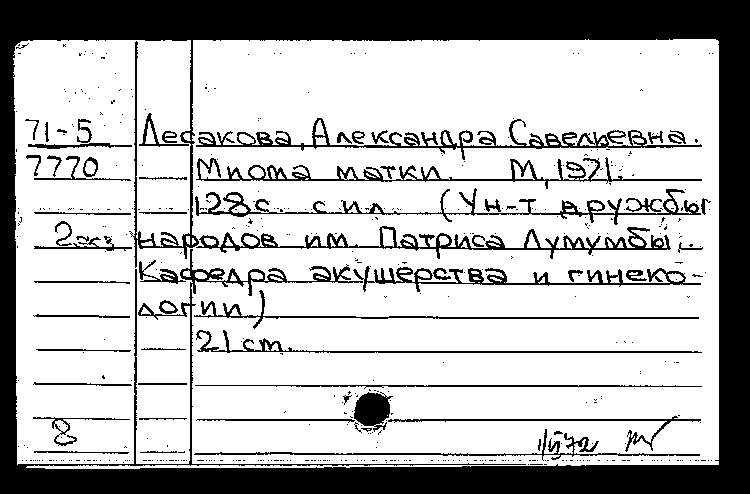 71-5 Лесакова, Александра Савельевна.
7770 Миома матки. М, 1971.
128с. с ил. (Ун-т дружбы
2экз народов им. Патриса Лумумбы.
Кафедра акушерства и гинеко-
логии)
21 cm.
8